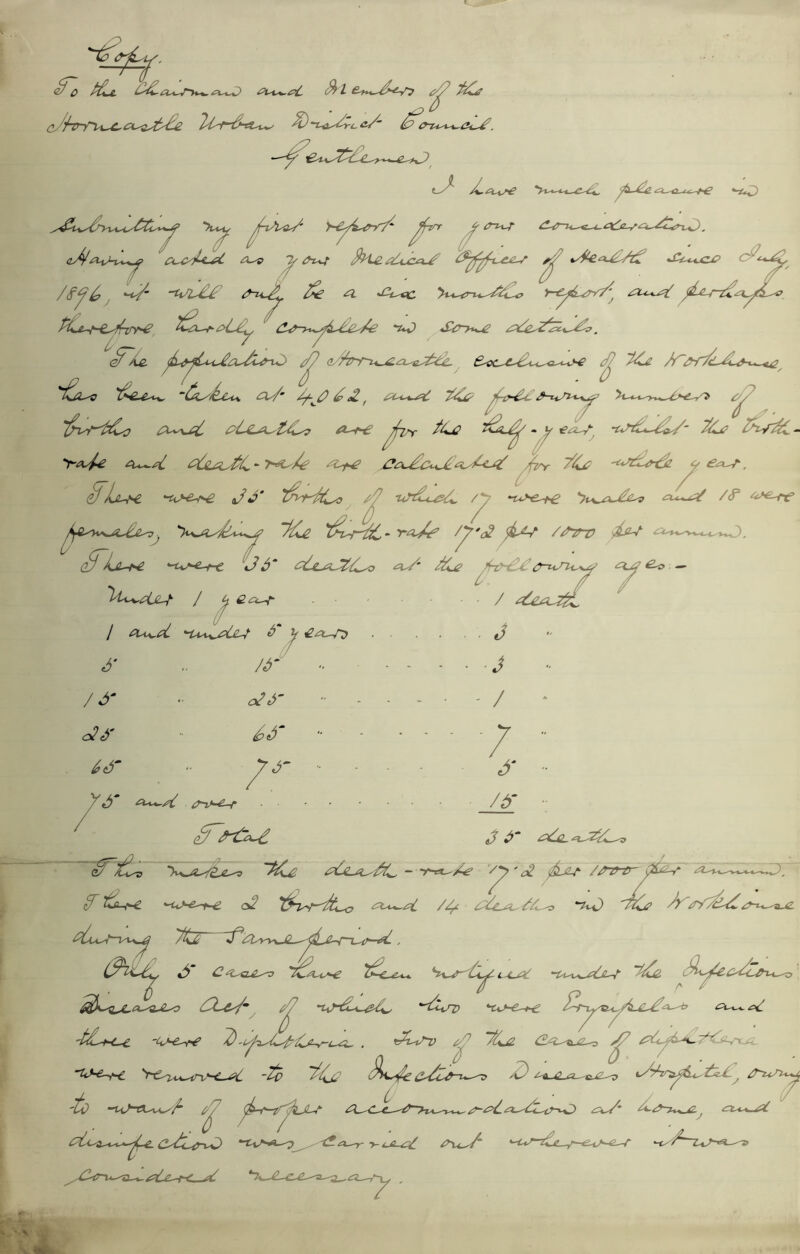 Copy.
To the Chairman and Members of the
Horncastle Urban District Council.
Gentlemen,
I have much pleasure in
submitting my first report for your consideration.
Having acted as your Medical Officer of Health since July,
1896, it will only be a six months report, and perhaps
therefore hardly complete in some details.
The population of Horncastle, exclusive of the Workhouse,
has been taken at 4062, and the following numbers of
births and deaths are for the half-year, whilst the birth-
rate and death-rate are calculated for the whole year.
There were 35 births, of which 17 were males and 18 were
females, making the birth-rate 17.2 per 1000 per annum.
There were 35 deaths at the following ages. —
Under 1 year . . . . 1 death
1 and under 5 years . . . . . 3 "
5 " 15 " . . . . . 3 "
15 " 25 " . . . . . 1 "
25 " 65 " . . . . . 7 "
65 " 75 " . . . . 5 "
75 and over . . . . . . . 15 "
Total 35 deaths
This makes the death-rate 17.2 per 1000 per annum.
There were 2 births and 14 deaths in the Workhouse
during the same period.
Only 5 cases have been notified under the Infectious
Diseases Act, of which two were Erysipelas and
three were Diphtheria. Two of the cases of diphtheria
were removed to the Infectious Diseases Hospital, owing
to want of proper accommodation at home, and
disinfection was carried out wherever it was
considered necessary.